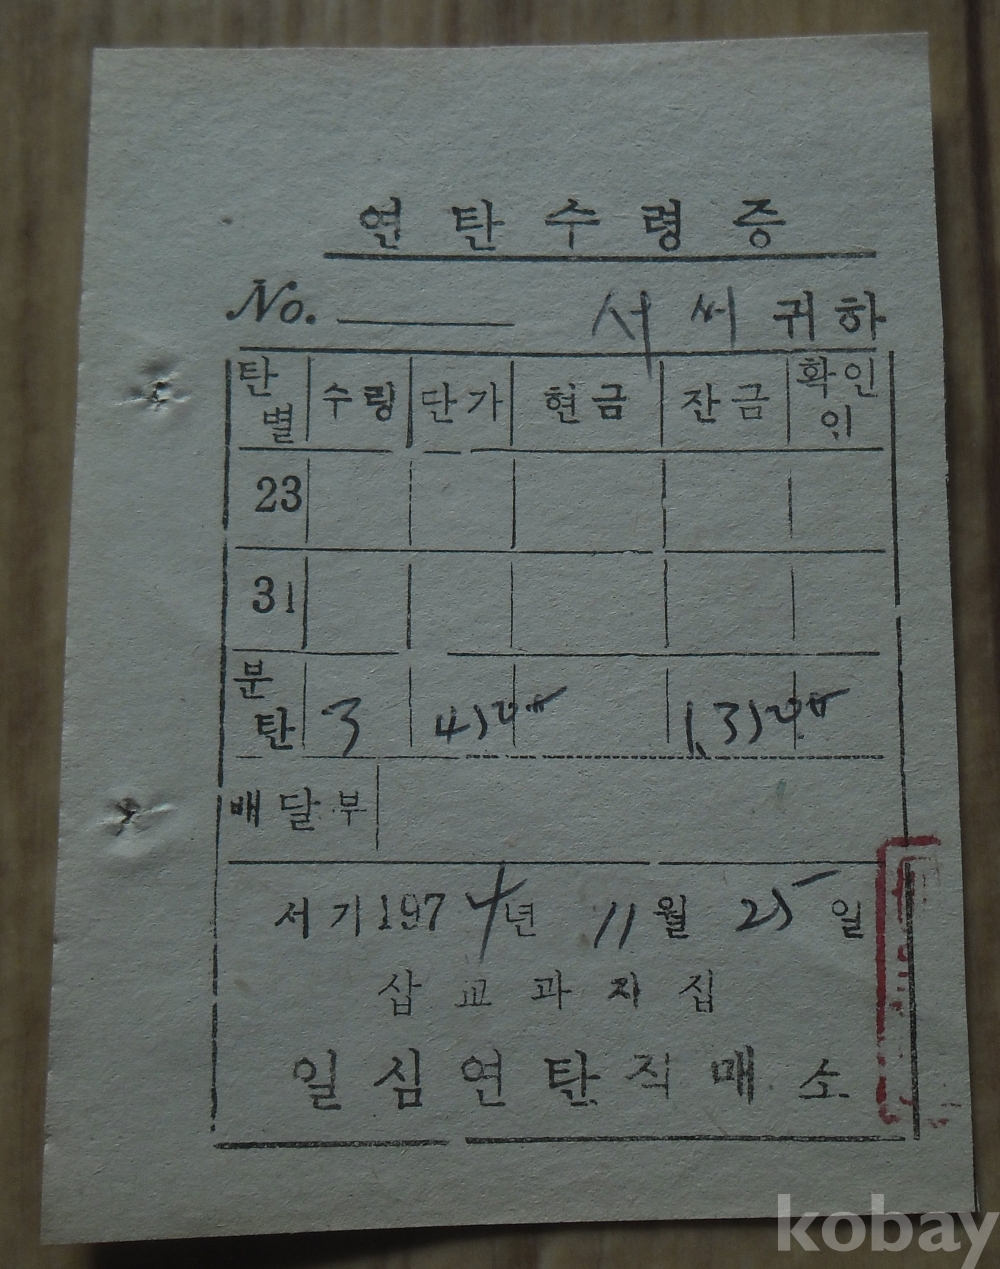 연탄수령증
No. 서 써 귀하
탄별 수량 단가 현금 잔금 확인인
23
31
분탄 3
배달부
서기 1974년 11월 25일
삽교과자집
일심연탄직매소
kobay